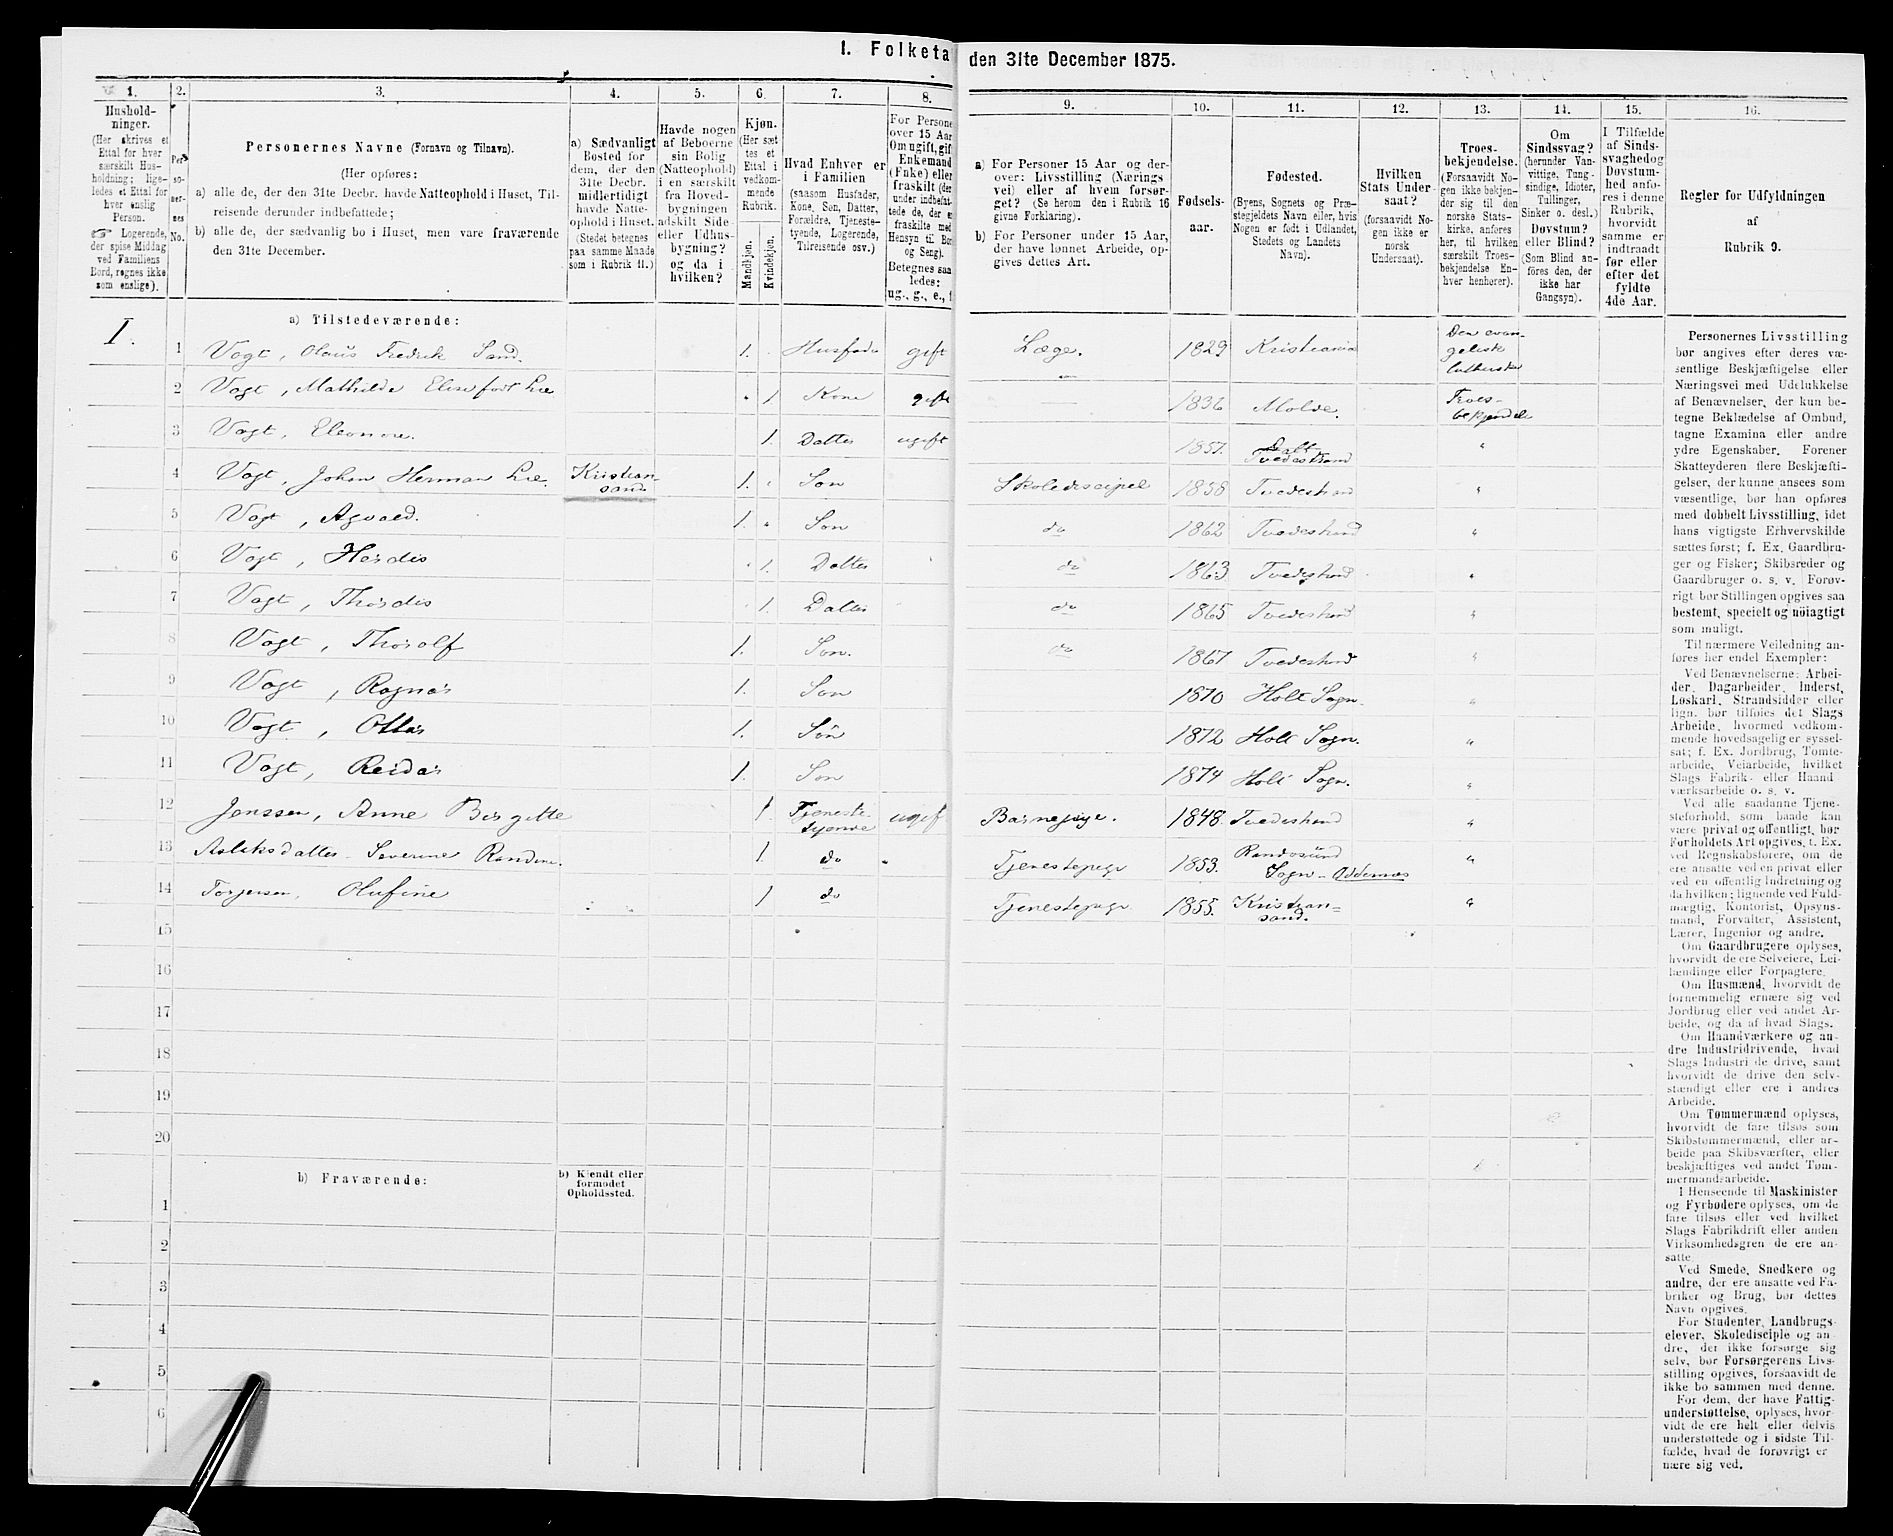 1. Folketa den 31te December 1875.
1. 2. 3. 4. 5. 6. 7. 8. 9. 10. 11. 12. 13. 14. 15. 16.
Hushold-
ninger.
(Her skrives et
Ettal for hver
særskilt Hus-
holdning; lige-
ledes et Ettal for
hver enslig
Person.
☞ Logerende,
der spise Middag
ved Familiens
Bord, regnes ikke
som enslige).
Per-
so-
ner-
nes
No.
Personernes Navne (Fornavn og Tilnavn).
(Her opføres:
a) alle de, der den 31te Decbr. havde Natteophold i Huset, Til-
reisende derunder indbefattede;
b) alle de, der sædvanlig bo i Huset, men vare fraværende
den 31te December.
a) Sædvanligt
Bosted for
dem, der den
31te Decbr.
midlertidigt
havde Natte-
ophold i Huset.
(Stedet betegnes
paa samme Maade
som i Rubrik 11.)
Havde nogen
af Beboerne
sin Bolig
(Natteophold)
i en særskilt
fra Hoved-
bygningen
adskilt Side-
eller Udhus-
bygning?
og da i
hvilken?
Kjøn.
(Her sæt-
tes et
Ettal i
vedkom-
mende
Rubrik.
Mandkjøn.
Kvindekjøn.
Hvad Enhver er
i Familien
(saasom Husfader,
Kone, Søn, Datter,
Forældre, Tjeneste-
tyende, Logerende,
Tilreisende osv.)
For Persone
over 15 Aar
Om ugift, gif
Enkemand
(Enke) eller
fraskilt (der
under indbefat-
tede de, der er
fraskilte med
Hensyn til Bo
og Seng).
Betegnes saa
ledes:
ug., g., e., f
a) For Personer 15 Aar og der-
over: Livsstilling (Nærings-
vei) eller af hvem forsør-
get? (Se herom den i Rubrik 16
givne Forklaring).
b) For Personer under 15 Aar,
der have lønnet Arbeide, op-
gives dettes Art.
Fødsels-
aar.
Fødested.
(Byens, Sognets og Præ-
stegjeldets Navn eller, hvis
Nogen er født i Udlandet,
Stedets og Landets
Navn).
Hvilken
Stats Under-
saat?
(forsaavidt No-
gen ikke er
norsk
Undersaat).
Troes-
bekjendelse.
(Forsaavidt No-
gen ikke bekjen-
der sig til den
norske Stats-
kirke, anføres
her, til hvilken
særskilt Troes-
bekjendelse En-
hver henhører).
Om
Sindssvag?
(herunder Van-
vittige, Tung-
sindige, Idioter,
Tullinger,
Sinker o. desl.)
Døvstum?
eller Blind?
(Som Blind an-
føres den, der
ikke har
Gangsyn).
I Tilfælde
af Sinds-
svaghed og
Døvstum-
hed anfø-
res i denne
Rubrik,
hvorvidt
samme er
indtraadt
før eller
efter det
fyldte
4de Aar.
Regler for Udfyldningen
af
Rubrik 9.
a) Tilstedeværende:
I. 1 Vogt, Olaus Fredrik Sand. 1. Husfader gift Læge. 1829 Kristiania Den evan-
gelisk
lutherske
2 Vogt, Mathilde Elise født Lie 1 Kone gift 1836 Molde. Troes-
bekjendel
3 Vogt, Eleonore. 1. Datter ugift 1857. Tvedestrand "
4 Vogt, Johan Herman Lie. Kristian-
sand 1. Søn Skolediscipel 1858 Tvedestrand "
5 Vogt, Agvald. 1. Søn do 1862 Tvedestrand "
6 Vogt, Herdis 1. Datter do 1863 Tvedestrand "
7 Vogt, Thordis 1. Datter do 1865 Tvedestrand "
8 Vogt, Thorolf 1. Søn. do 1867 Tvedestrand "
9 Vogt, Ragnar 1. Søn 1870 Holt Sogn. "
10 Vogt, Ottar 1. Søn 1872 Holt Sogn. "
11 Vogt, Reidar 1. Søn 1874 Holt Sogn. "
12 Jenssen, Anne Birgitte 1. Tjeneste-
tyende ugif Barnepige. 1848. Tvedestrand "
13 Aslaksdatter Severine Randine. 1 do " Tjenestepige 1853. Randøsund
Sogn - Oddernæs "
14 Torjersen, Olufine 1 do Tjenestepige 1855. Kristian=
sand. "
15
16
17
18
19
20
b) Fraværende:
b) Kjendt eller
formodet
Opholdssted.
1
2
3
4
5
6
Personernes Livsstilling
bør angives efter deres væ-
sentlige Beskjæftigelse eller
Næringsvei med Udelukkelse
af Benævnelser, der kun be-
tegne Beklædelse af Ombud,
tagne Examina eller andre
ydre Egenskaber. Forener
Skatteyderen flere Beskjæfti-
gelser, der kunne ansees som
væsentlige, bør han opføres
med dobbelt Livsstilling, idet
hans vigtigste Erhvervskilde
sættes først; f. Ex. Gaardbru-
ger og Fisker; Skibsreder og
Gaardbruger o. s. v. Forøv-
rigt bør Stillingen opgives saa
bestemt, specielt og nöiagtigt
som muligt.
Til nærmere Veiledning an-
føres her endel Exempler:
Ved Benævnelserne: Arbei-
der, Dagarbeider, Inderst,
Løskarl, Strandsidder eller
lign. bør tilføies det Slags
Arbeide, hvormed vedkom-
mende hovedsagelig er syssel-
sat; f. Ex. Jordbrug, Tomte-
arbeide, Veiarbeide, hvilket
Slags Fabrik- eller Haand
værksarbeide o. s. v.
Ved alle saadanne Tjene-
steforhold, som baade kan
være privat og offentligt, bør
Forholdets Art opgives, t. Ex.
ved Regnskabsførere, om de
ere ansatte ved en privat eller
ved en offentlig Indretning og
da hvilken; lignende ved Fuld-
mægtig, Kontorist, Opsyns-
mand, Forvalter, Assistent,
Lærer, Ingeniør og andre.
Om Gaardbrugere oplyses,
hvorvidt de ere Selveiere, Lei-
lændinge eller Forpagtere.
Om Husmænd, hvorvidt de
fornemmelig ernære sig ved
Jordbrug eller ved andet Ar-
beide, og da af hvad Slags.
Om Haandværkere og an-
dre Industridrivende, hvad
Slags Industri de drive, samt
hvorvidt de drive den selv-
stændigt eller ere i andres
Arbeide.
Om Tømmermænd oplyses,
hvorvidt de fare tilsøs som
Skibstømmermænd, eller ar-
beide paa Skibsværfter, eller
beskjæftiges ved andet Tøm-
mermandsarbeide.
I Henseende til Maskinister
og Fyrbødere oplyses, om de
fare tilsøs eller ved hvilket
Slags Fabrikdrift eller anden
Virksomhedsgren de ere an-
satte.
Ved Smede, Snedkere og
andre, der ere ansatte ved Fa-
briker og Brug, bør dettes
Navn opgives.
For Studenter, Landbrugs-
elever, Skoledisciple og an-
dre, der ikke forsørge sig
selv, bør Forsørgerens Livs-
stilling opgives, forsaavidt de
ikke bo sammen med denne.
For dem, der have Fattig-
understøttelse, oplyses, hvor-
vidt de ere helt eller delvis
understøttede og i sidste Til-
fælde, hvad de forøvrigt er
nære sig ved.